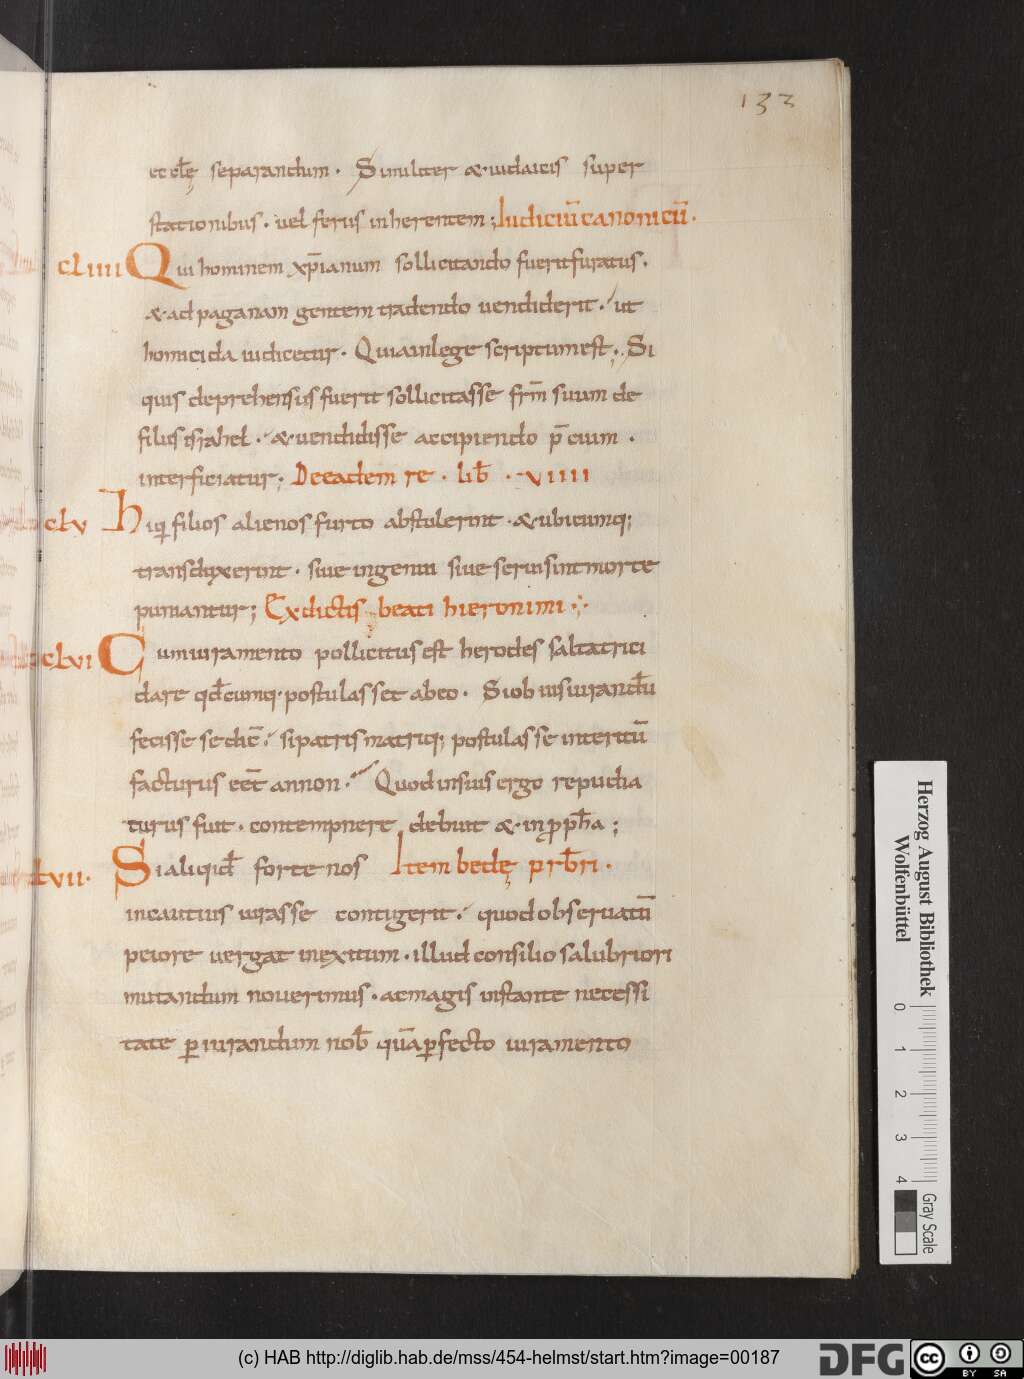 133
et clę separandum. Similiter & iudaicis super
stationibus. uel feriis inherentem; Iudiciū canonicū.
cLIIII Qui hominem xp̄ianum sollicitando fuerit furatus.
& ad paganam gentem tradendo uendiderit. ut
homicida iudicetur. Quia in lege scriptum est; Si
quis deprehensus fuerit sollicitasse frm̄ suum de
filiis israhel. & uendidisse accipiendo p̄cium.
interficiatur; De eadem re. lib̄. VIIII
cLV Hiqui filios alienos furto abstulerint. & ubicumq;
transduxerint. siue ingenui siue serui sint morte
puniantur; Ex dictis beati hieronimi.
cLVI Cum iuramento pollicitus est herodes saltatrici
dare qd̄cumq; postulasset ab eo. Si ob iusiurandū
fecisse se dic̄. si patris matrisq; postulasse interitū
facturus eēt an non. Quod in suis ergo repudia
turus fuit. contempnere debuit & in ꝓph̄a;
LVII. Si aliqid̄ forte nos Item bedę prb̄ri.
incautius iurasse contigerit. quod obseruatū
peiore uergat in exitum. illud consilio salubriori
mutandum nouerimus. ac magis instante necessi
tate ꝑiurandum nob̄ quā ꝑfecto iuramento
Herzog August Bibliothek
Wolfenbüttel
0 1 2 3 4
Gray Scale
(c) HAB http://diglib.hab.de/mss/454-helmst/start.htm?image=00187
DFG
cc BY SA